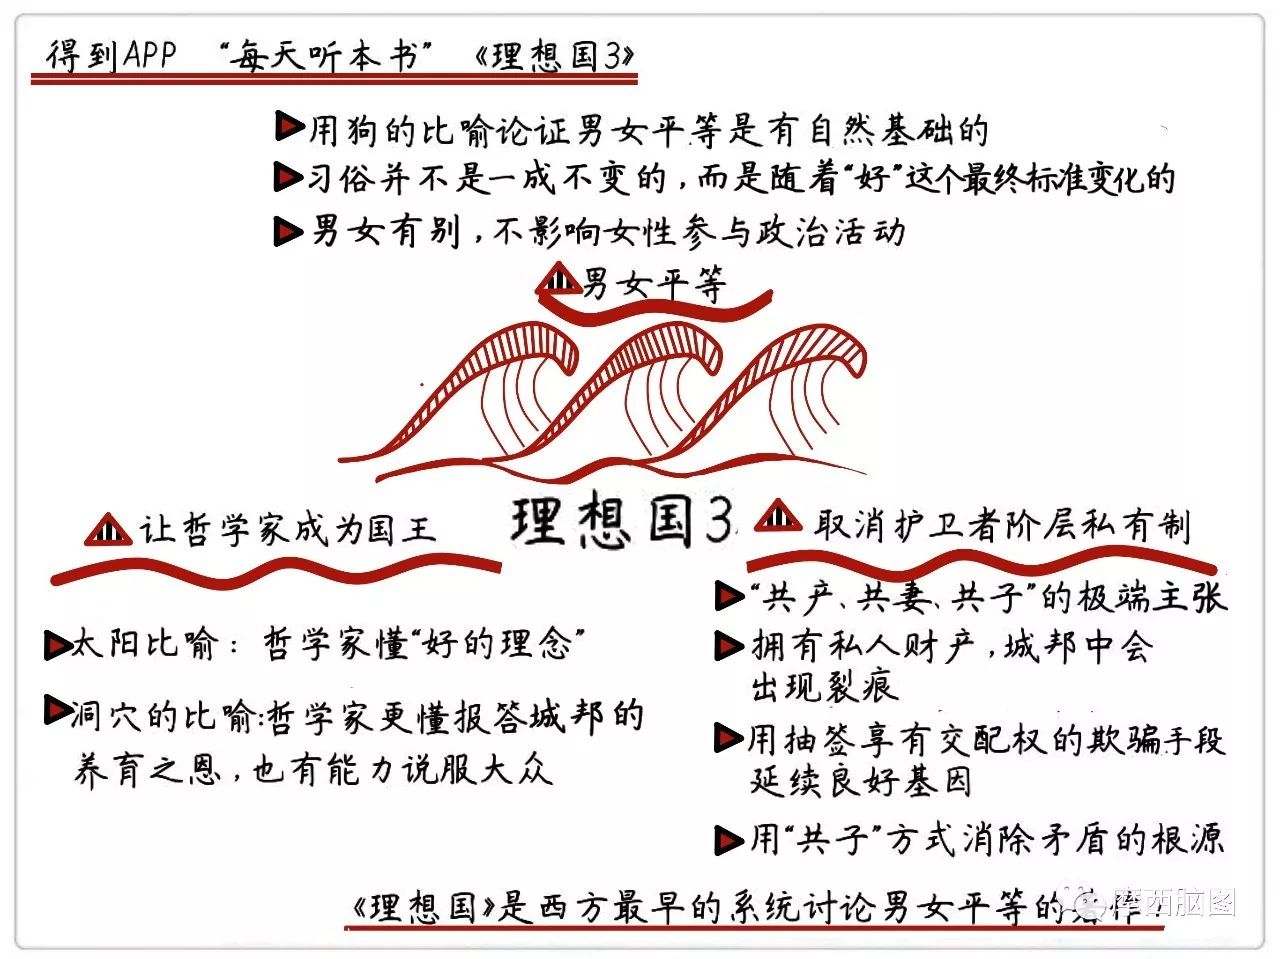 得到APP “每天听本书” 《理想国3》
用狗的比喻论证男女平等是有自然基础的
习俗并不是一成不变的,而是随着“好”这个最终标准变化的
男女有别,不影响女性参与政治活动
男女平等
理想国3
让哲学家成为国王
太阳比喻: 哲学家懂“好的理念”
洞穴的比喻:哲学家更懂报答城邦的
养育之恩,也有能力说服大众
取消护卫者阶层私有制
“共产、共妻、共子”的极端主张
拥有私人财产,城邦中会
出现裂痕
用抽签享有交配权的欺骗手段
延续良好基因
用“共子”方式消除矛盾的根源
《理想国》是西方最早的系统讨论男女平等的
摩西脑图